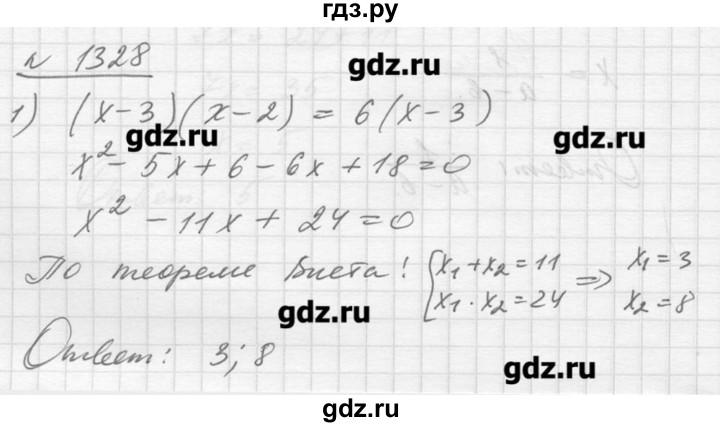 гдз.ру
№ 1328
gdz.ru
1) (x-3)(x-2) = 6(x-3)
gdz.ru
gdz.ru
x² - 5x + 6 - 6x + 18 = 0
x² - 11x + 24 = 0
По теореме Виета: { x₁ + x₂ = 11 ⇒ x₁ = 3
x₁ · x₂ = 24 x₂ = 8
gdz.ru
Ответ: 3; 8
gdz.ru
gdz.ru